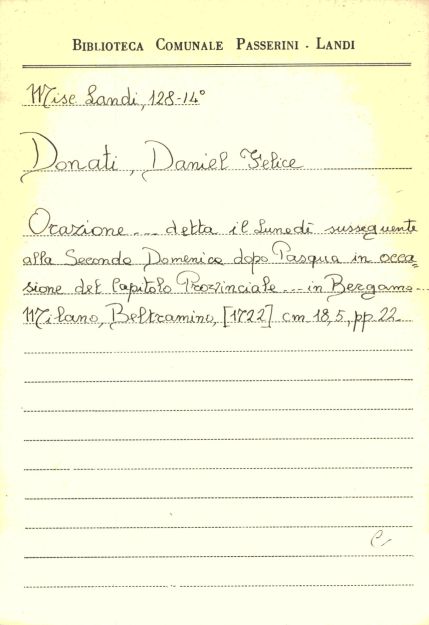 BIBLIOTECA COMUNALE PASSERINI - LANDI
Misc Landi, 128-14°
Donati, Daniel Felice
Orazione ... detta il Lunedì susseguente
alla Seconda Domenica dopo Pasqua in occa=
sione del Capitolo Provinciale ... in Bergamo.
Milano, Beltramino, [1722] cm 18,5, pp. 22.